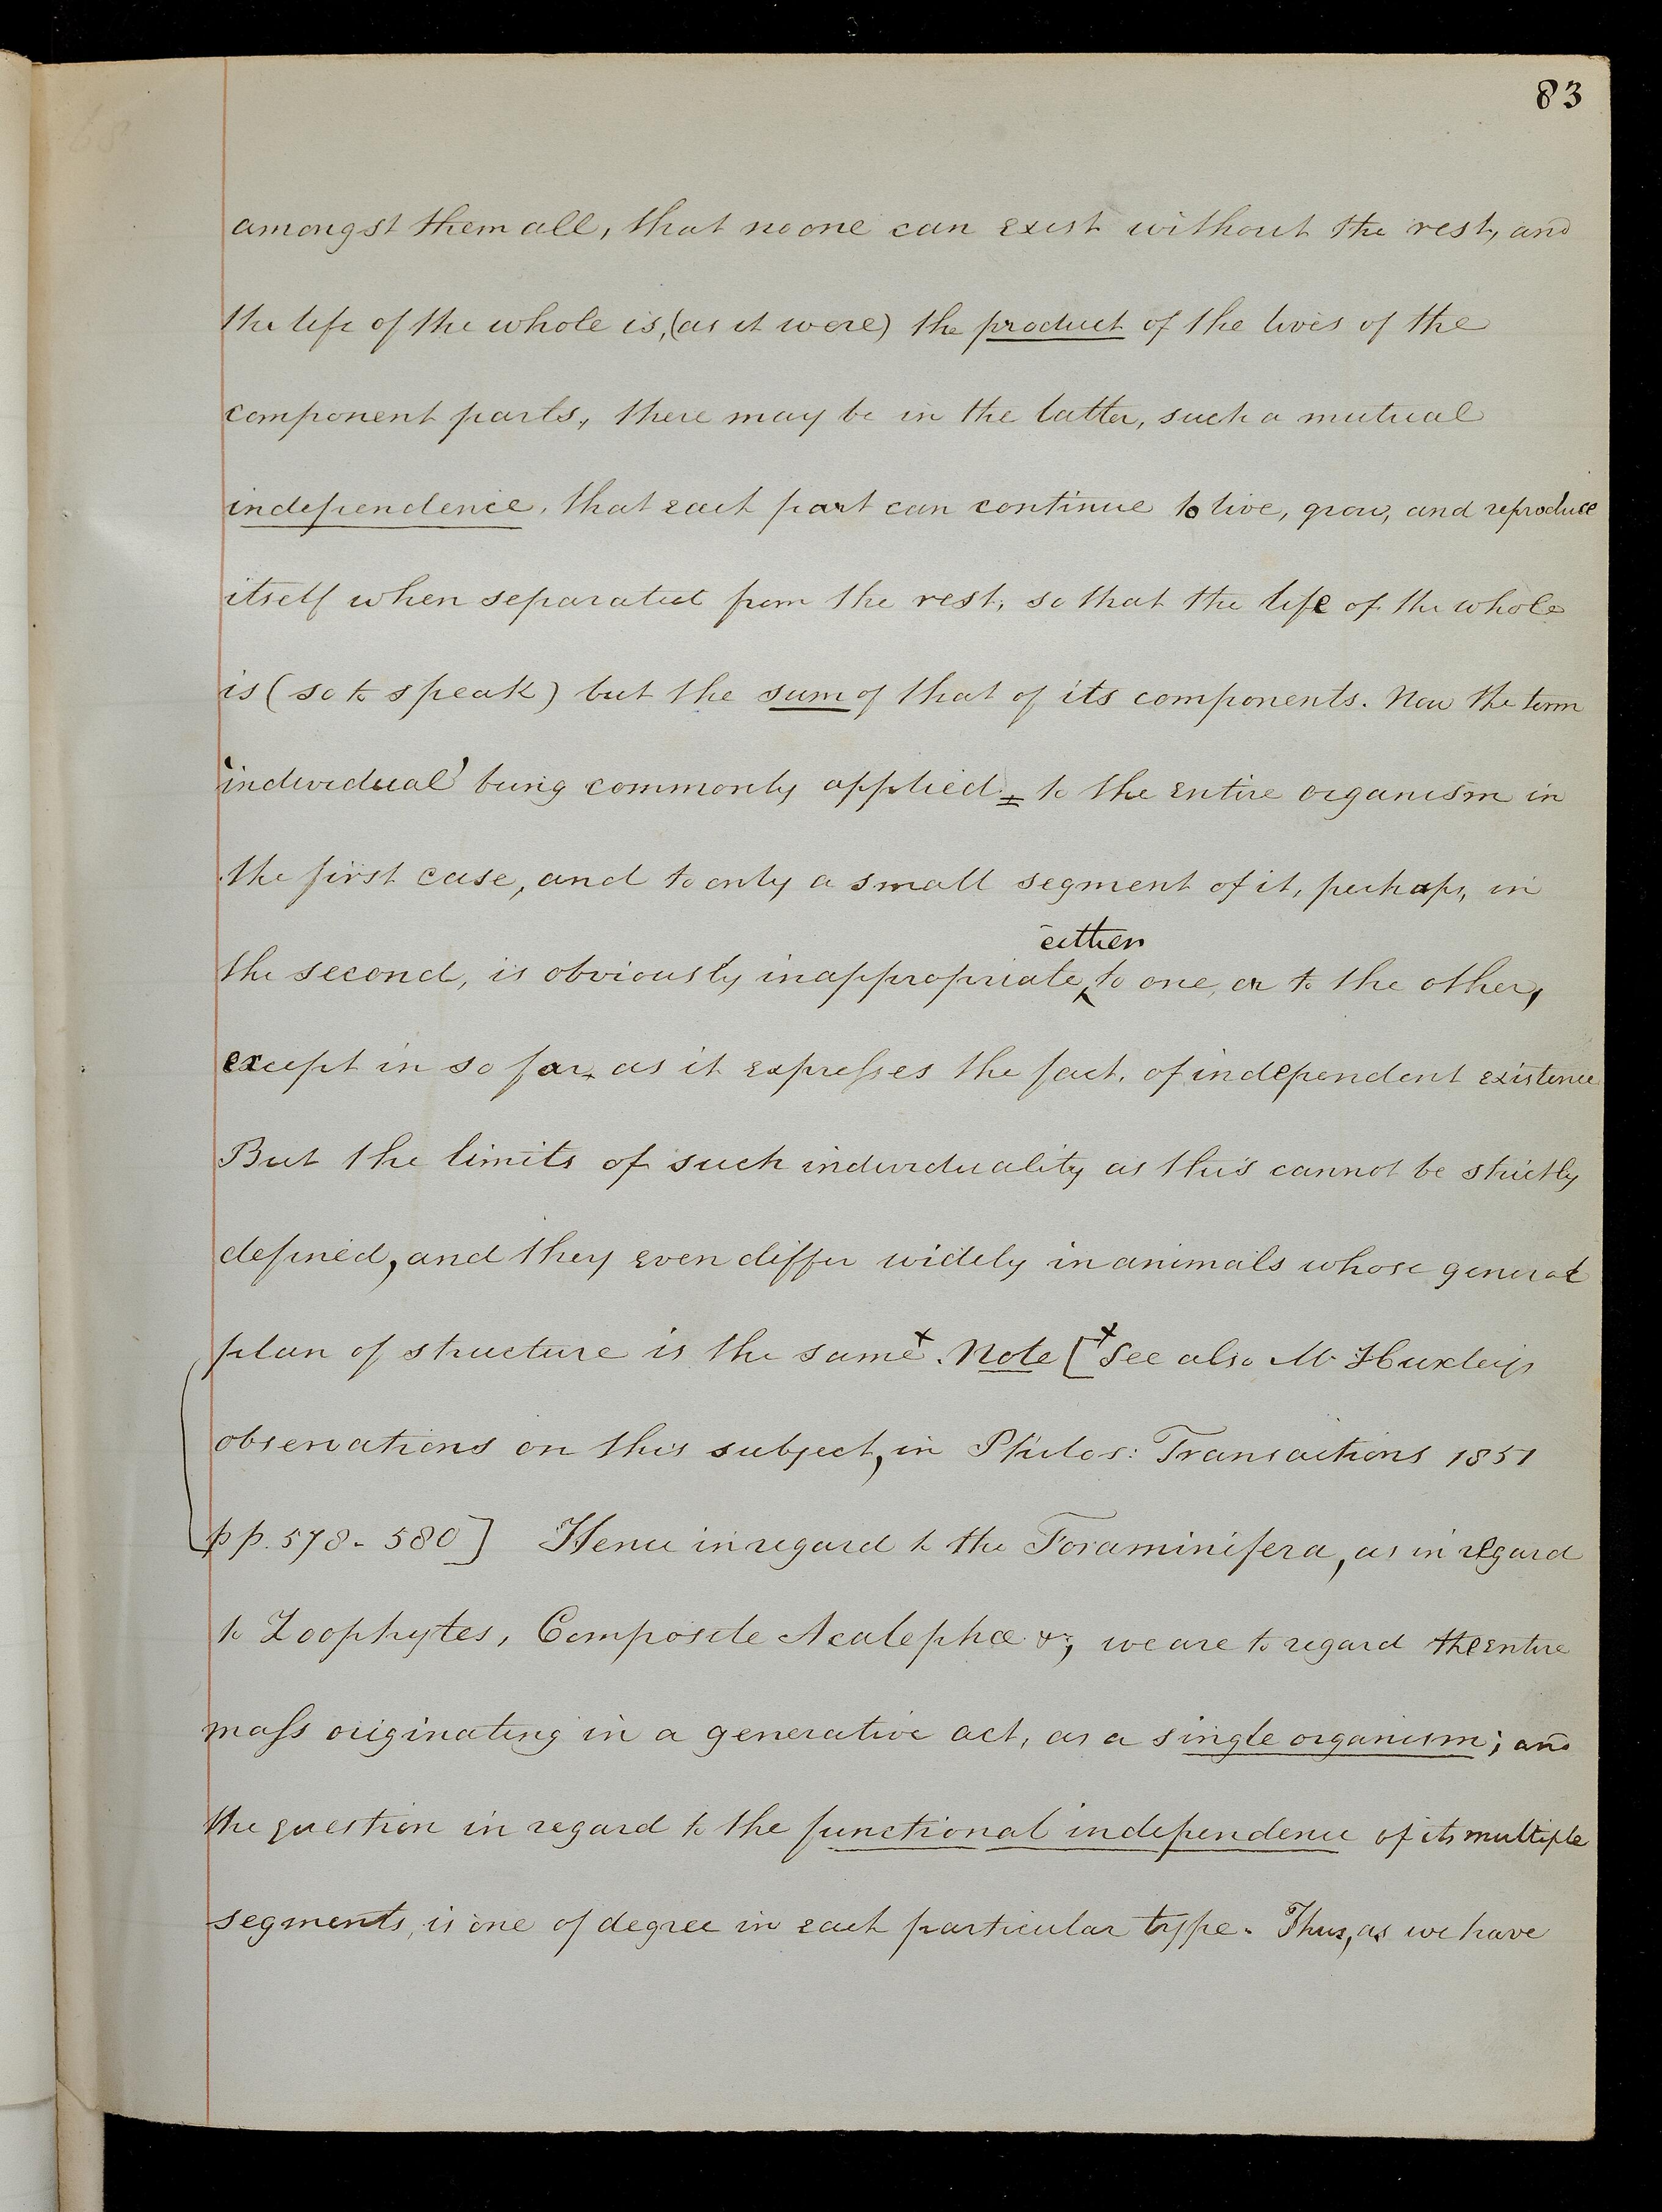 83
amongst them all, that no one can exist without the rest, and
the life of the whole is, (as it were) the product of the lives of the
component parts, there may be in the latter, such a mutual
independence, that each part can continue to live, grow, and reproduce
itself when separated from the rest, so that the life of the whole
is (so to speak) but the sum of that of its components. Now the term
'individual' being commonly applied to the entire organism in
the first case, and to only a small segment of it, perhaps, in
either
the second, is obviously inappropriate to one, or to the other,
except in so far as it expresses the fact, of independent existence
But the limits of such individuality as this cannot be strictly
defined, and they even differ widely in animals whose general
plan of structure is the same x. Note [x See also Mr Huxley's
observations on this subject, in Philos: Transactions 1851
pp. 578-580] Hence in regard to the Foraminifera, as in regard
to Zoophytes, Composite Acalephæ &c, we are to regard the entire
mass originating in a generative act, as a single organism; and
the question in regard to the functional independence of its multiple
segments, is one of degree in each particular type. Thus, as we have